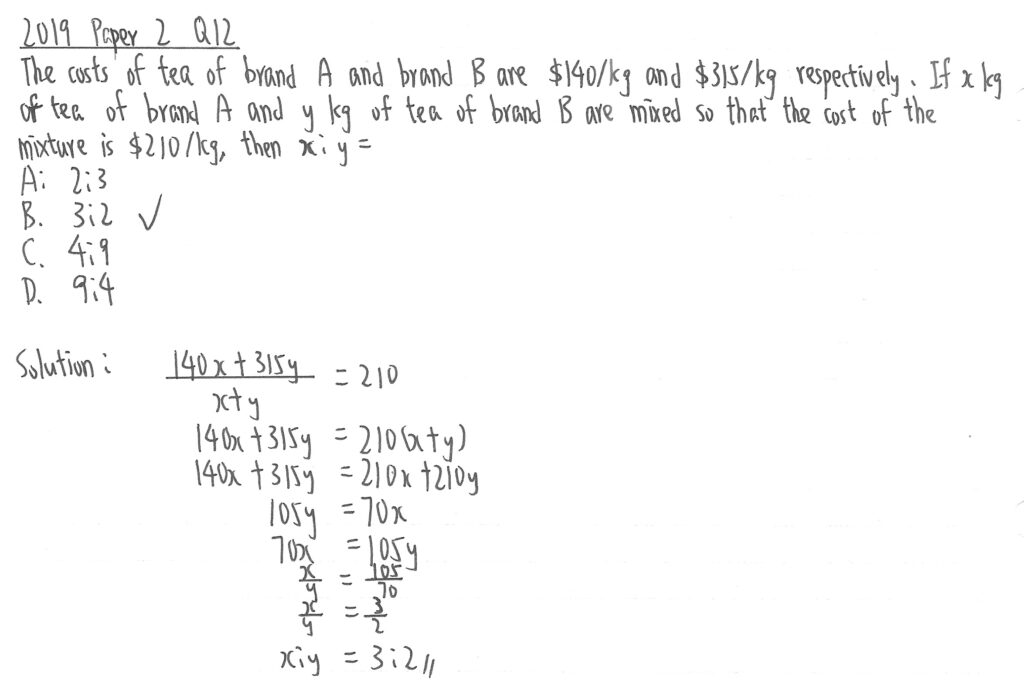 2019 Paper 2 Q12
The costs of tea of brand A and brand B are $140/kg and $315/kg respectively. If x kg
of tea of brand A and y kg of tea of brand B are mixed so that the cost of the
mixture is $210/kg, then x:y =
A: 2:3
B. 3:2 ✓
C. 4:9
D. 9:4
Solution: (140x+315y)/(x+y) = 210
140x+315y = 210(x+y)
140x+315y = 210x+210y
105y = 70x
70x = 105y
x/y = 105/70
x/y = 3/2
x:y = 3:2//